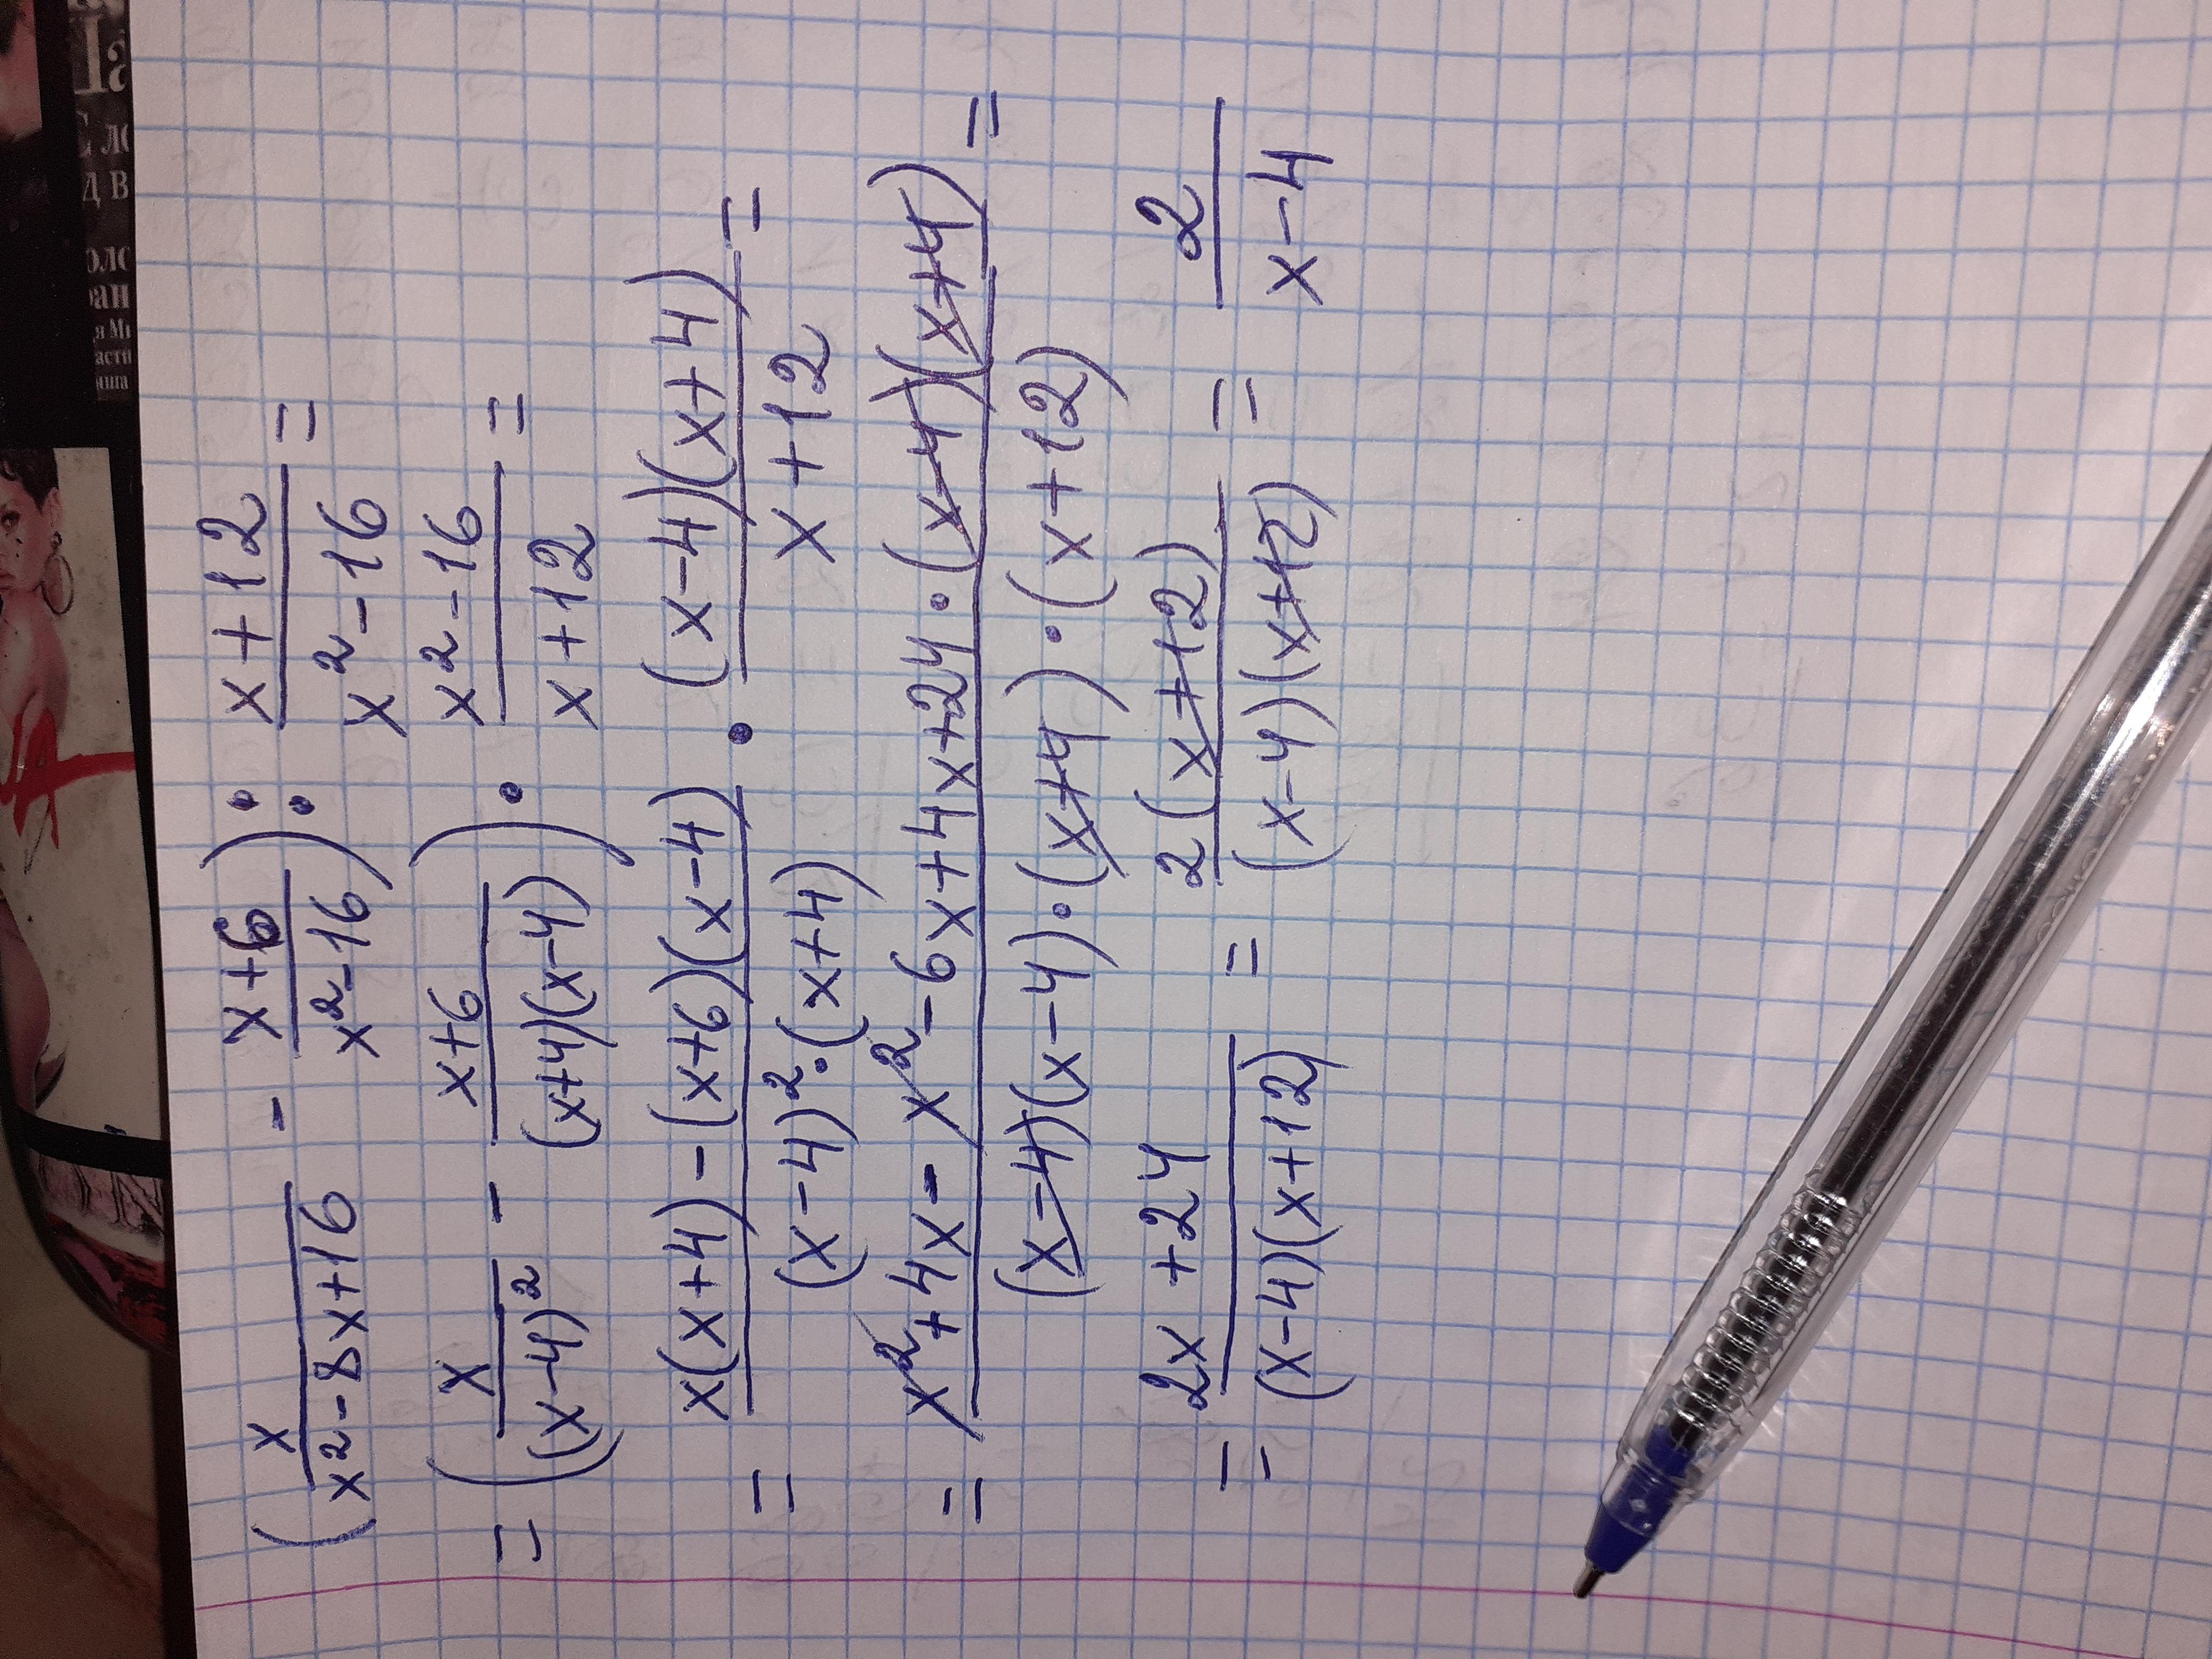 (x/(x²-8x+16) - (x+6)/(x²-16)) : (x+12)/(x²-16) =
= (x/(x-4)² - (x+6)/((x+4)(x-4))) · (x²-16)/(x+12) =
= (x(x+4)-(x+6)(x-4))/((x-4)²·(x+4)) · ((x-4)(x+4))/(x+12) =
= (x²+4x-x²-6x+4x+24·(x-4)(x+4))/((x-4)(x-4)·(x+4)·(x+12)) =
= (2x+24)/((x-4)(x+12)) = (2(x+12))/((x-4)(x+12)) = 2/(x-4)